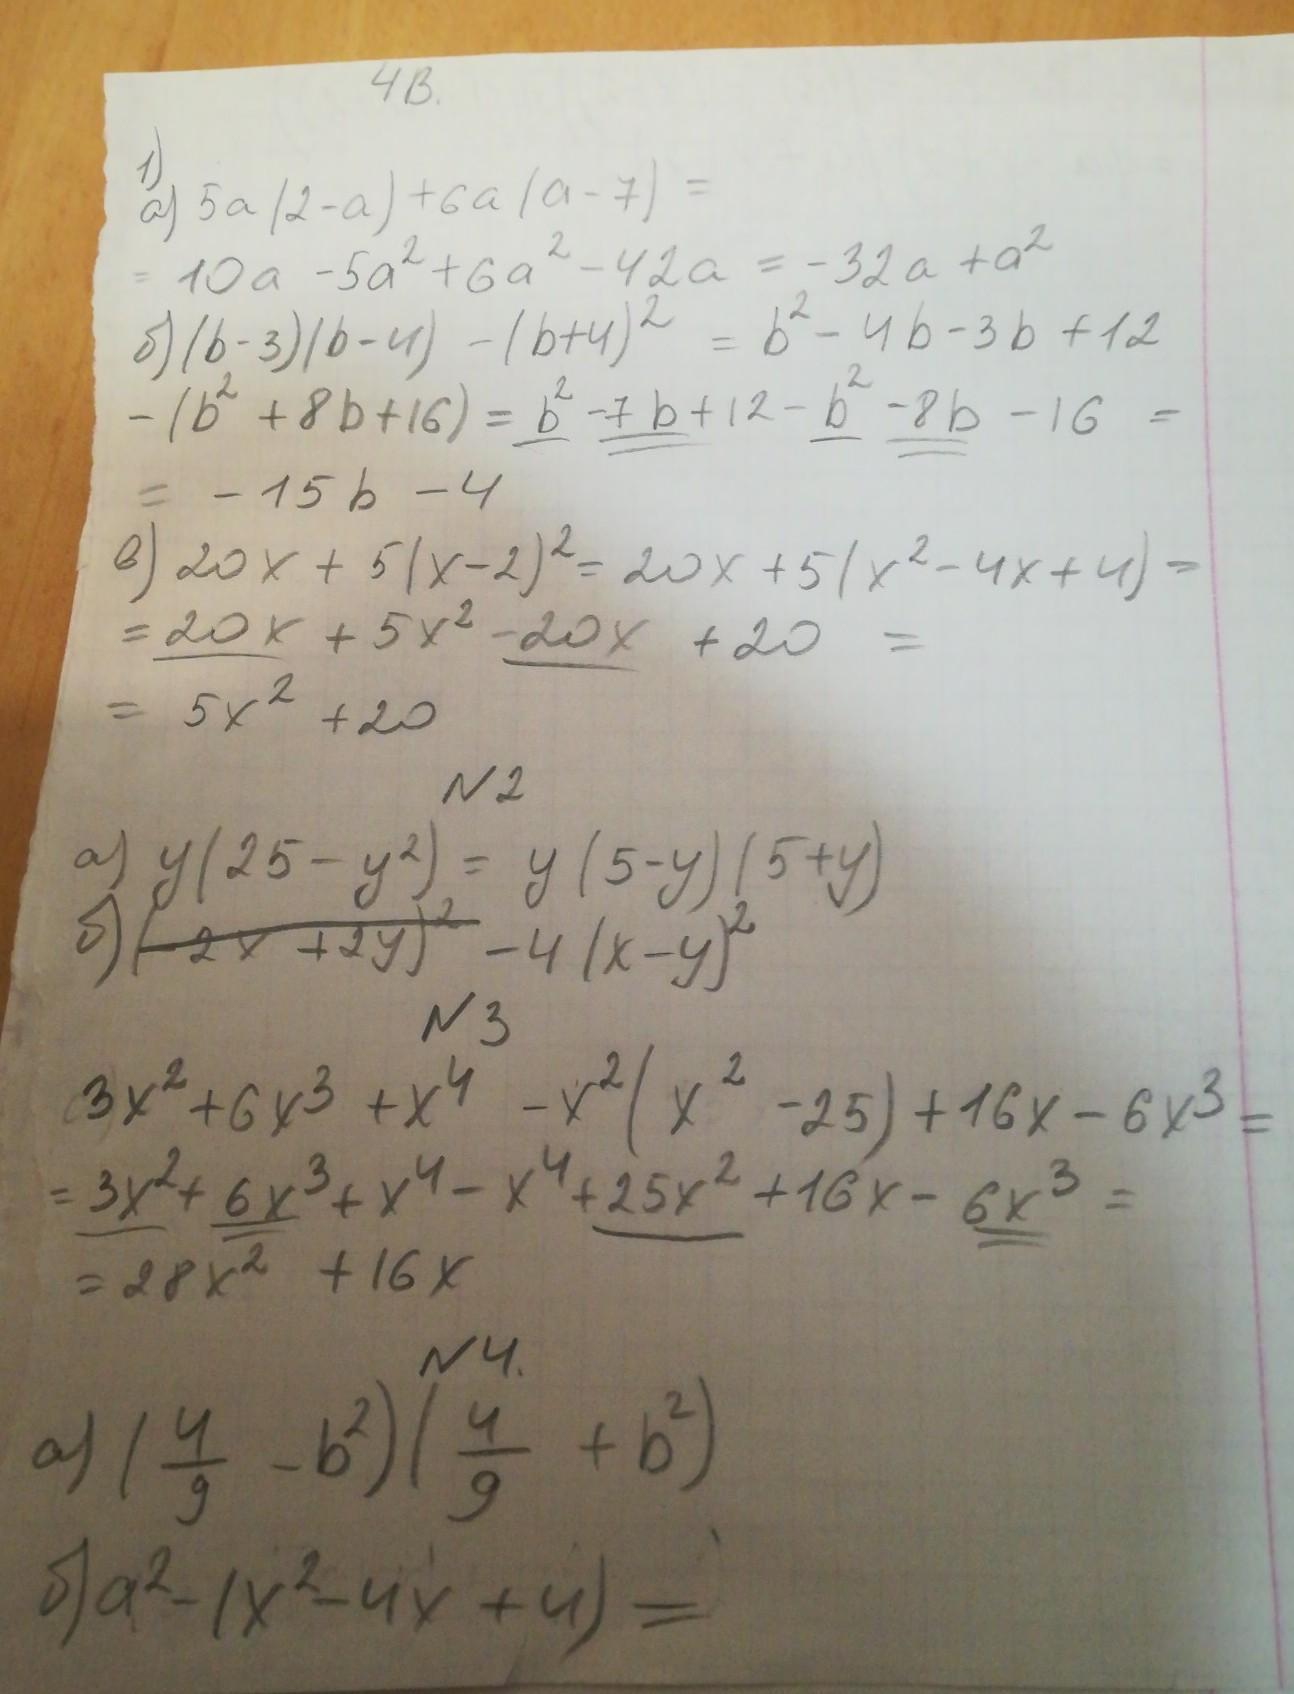 4В.
1)
а) 5a(2-a)+6a(a-7) =
= 10a -5a² +6a² -42a = -32a +a²
б) (b-3)(b-4) -(b+4)² = b² - 4b -3b +12
-(b² +8b+16) = b² -7b+12 -b² -8b -16 =
= -15b -4
в) 20x + 5(x-2)² = 20x +5(x² -4x+4) =
= 20x + 5x² -20x +20 =
= 5x² +20
N2
а) y(25-y²) = y(5-y)(5+y)
б) (-2x +2y)² -4(x-y)²
N3
3x² +6x³ +x⁴ -x²(x² -25)+16x -6x³ =
= 3x² + 6x³ + x⁴ - x⁴ +25x² +16x - 6x³ =
= 28x² +16x
N4.
а) (4/9 -b²)(4/9 +b²)
б) a² -(x² -4x +4) =